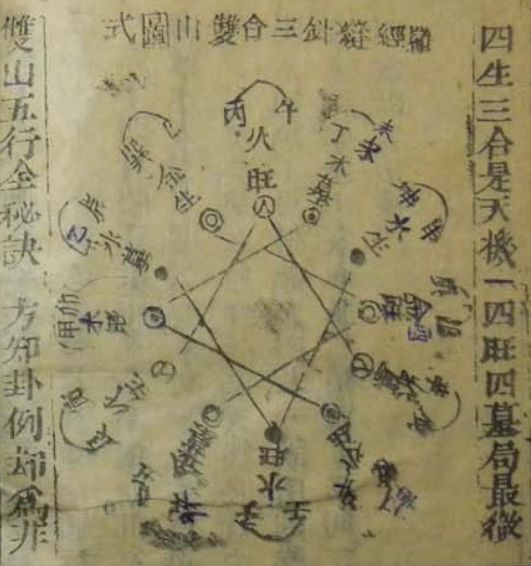 羅經縫針三合雙山圖式
四生三合是天機一四旺四墓局最微
雙山五行全秘訣 方知卦例却為非
丙午
火旺
丁未
木墓
坤申
水生
巽巳
金生
乙辰
水墓
甲卯
木旺
艮寅
火生
壬子
水旺